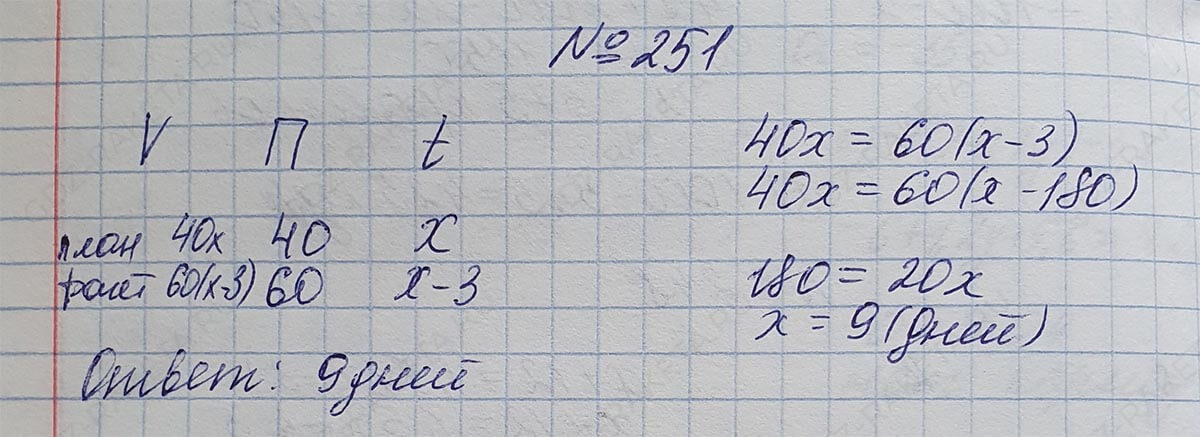 № 251
V П t
план 40x 40 x
факт 60(x-3) 60 x-3
Ответ: 9 дней
40x = 60(x-3)
40x = 60(x-180)
180 = 20x
x = 9 (дней)